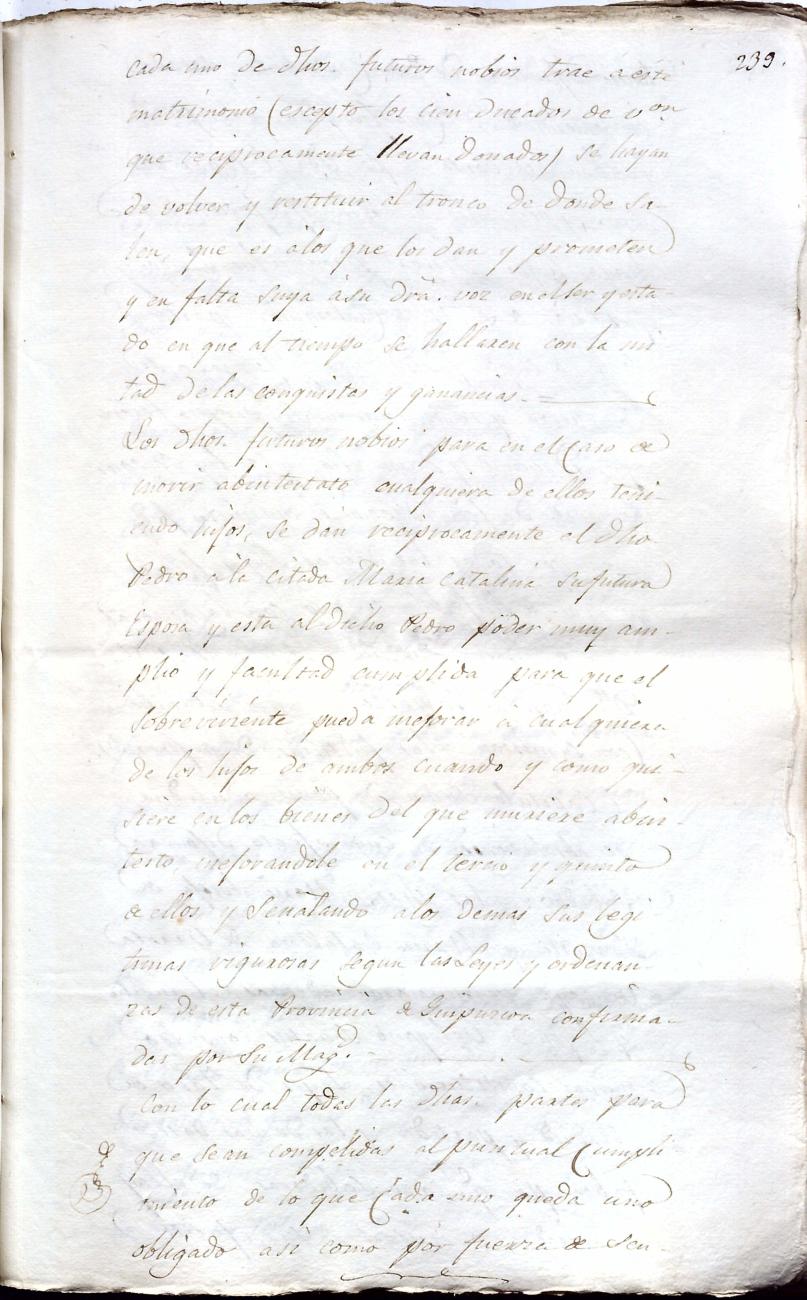 239.
cada uno de dhos. futuros nobios trae a este
matrimonio (escepto los cien ducados de von
que reciprocamente llevan donados) se hayan
de volver y restituir al tronco de donde sa-
len, que es a los que los dan y prometen
y en falta suya á su dra. voz en el ser y esta-
do en que al tiempo se hallaren con la mi
tad de las conquistas y ganancias.
Los dhos. futuros nobios para en el caso de
morir abintestato cualquiera de ellos teni-
endo hijos, se dan reciprocamente el dho
Pedro a la citada Maria Catalina su futura
Esposa y esta al dicho Pedro poder muy am-
plio y facultad cumplida para que el
sobreviviente pueda mejorar a cualquiera
de los hijos de ambos cuando y como qui-
siere en los bienes del que muriere abin-
testo, mejorandole en el tercio y quinto
de ellos y señalando a los demas sus legi-
timas rigurosas segun las Leyes y ordenan-
zas de esta Provincia de Guipuzcoa confirma-
das por Su Magd.
Con lo cual todas las dhas. partes para
que sean compelidas al puntual cumpli-
miento de lo que cada uno queda uno
obligado asi como por fuerza de Sen-